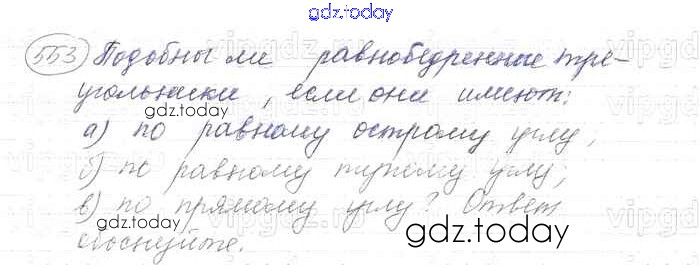 gdz.today
553 Подобны ли равнобедренные тре-
угольники, если они имеют:
gdz.today
а) по равному острому углу;
б) по равному тупому углу;
в) по прямому углу? Ответ
gdz.today gdz.today
обоснуйте.